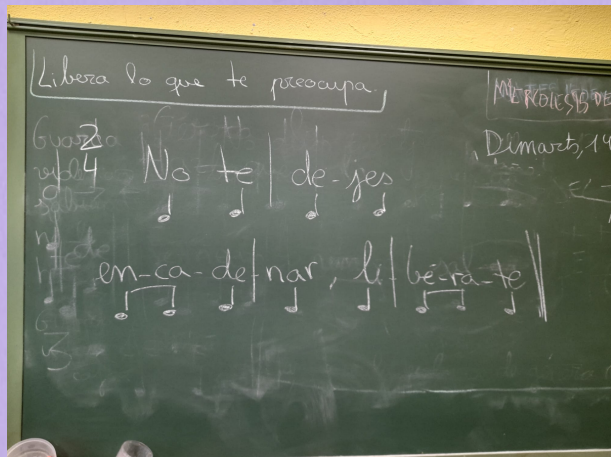 Libera lo que te preocupa.
MIERCOLES
Dimarts, 14
2
4
No te | de-jes
en-ca-de|nar, li|bé-ra-te||